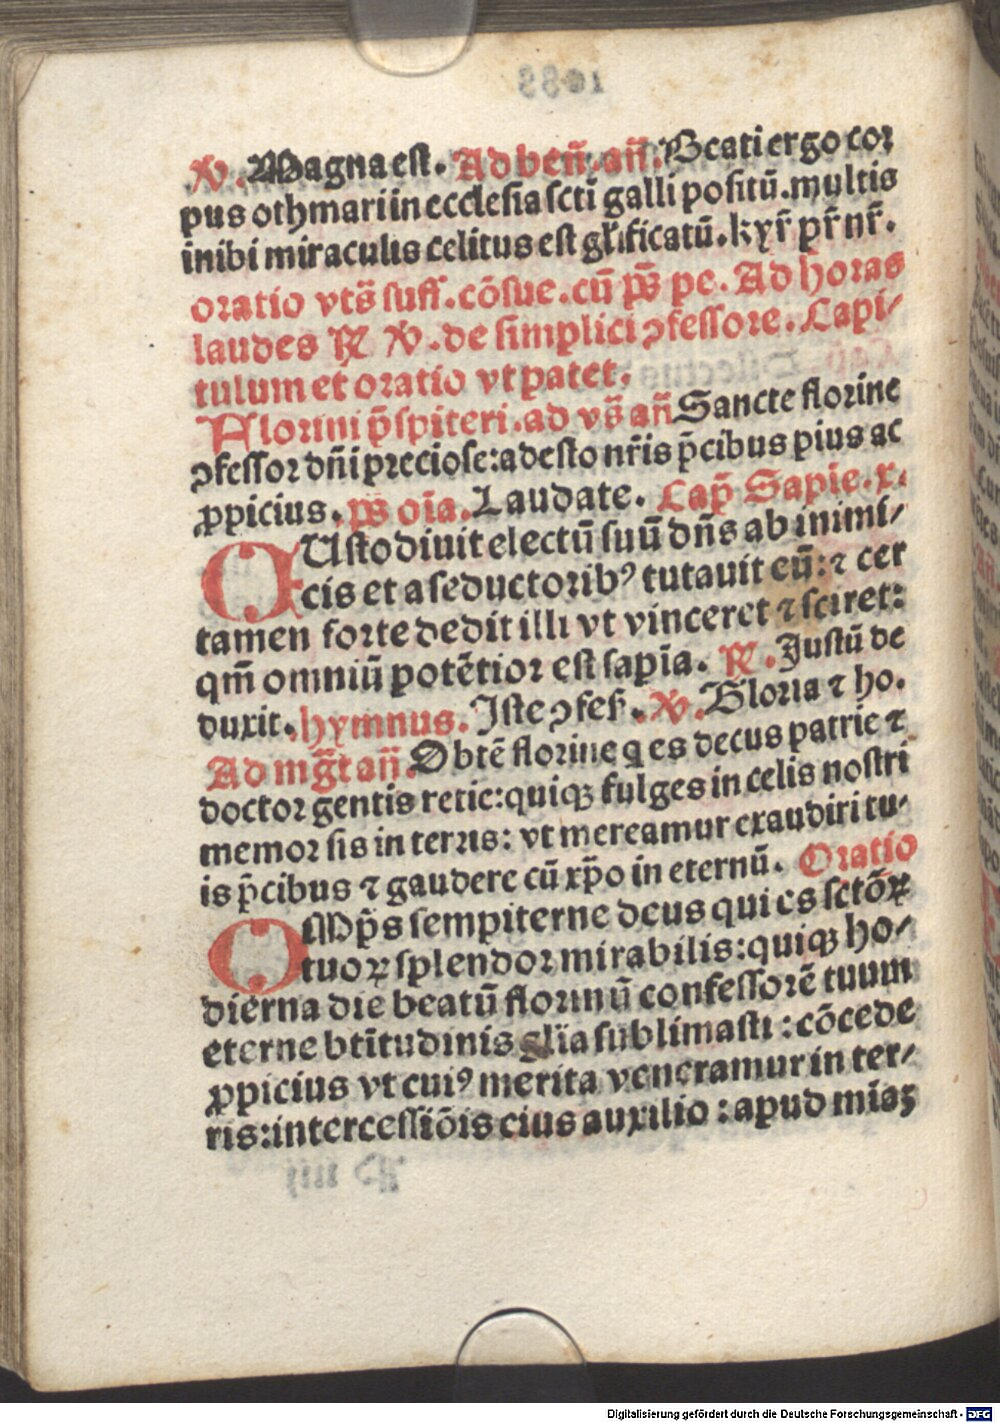 ℣. Magna est. Ad ben̄. an̄. Beati ergo cor
pus othmari in ecclesia scti̅ galli positū. multis
inibi miraculis celitus est gl̄ificatū. kyr̄ pr̄ nr̄.
oratio vts̄ suff. cōsue. cū ps̄ pe. Ad horas
laudes ℟ ℣. de simplici ꝯfessore. Capi/
tulum et oratio vt patet.
Florini p̄spiteri. ad vs̄ an̄ Sancte florine
ꝯfessor dn̄i preciose: adesto nr̄is p̄cibus pius ac
ꝓpicius. ps̄ oīa. Laudate. Cap̄ Sapie. x.
CUstodiuit electū suū dn̄s ab inimi/
cis et a seductoribꝰ tutauit eū: ⁊ cer
tamen forte dedit illi vt vinceret ⁊ sciret:
qm̄ omniū potētior est sapīa. ℟. Justū de
duxit. hymnus. Iste ꝯfes. ℣. Gloria ⁊ ho.
Ad mg̅t an̄. Obtē florine q es decus patrie ⁊
doctor gentis retie: quiqꝫ fulges in celis nostri
memor sis in terris: vt mereamur exaudiri tu/
is p̄cibus ⁊ gaudere cū xp̄o in eternū. Oratio
OMp̄s sempiterne deus qui es sctōꝝ
tuoꝝ splendor mirabilis: quiqꝫ ho/
dierna die beatū florinū confessorē tuum
eterne btītudinis glīa sublimasti: cōcede
ꝓpicius vt cuiꝰ merita veneramur in ter/
ris: intercessiōis eius auxilio: apud mīaꝫ
Digitalisierung gefördert durch die Deutsche Forschungsgemeinschaft - DFG